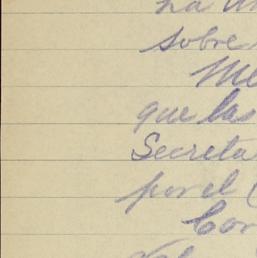 La
sobre
Me
que las
Secreta
por el
Cor